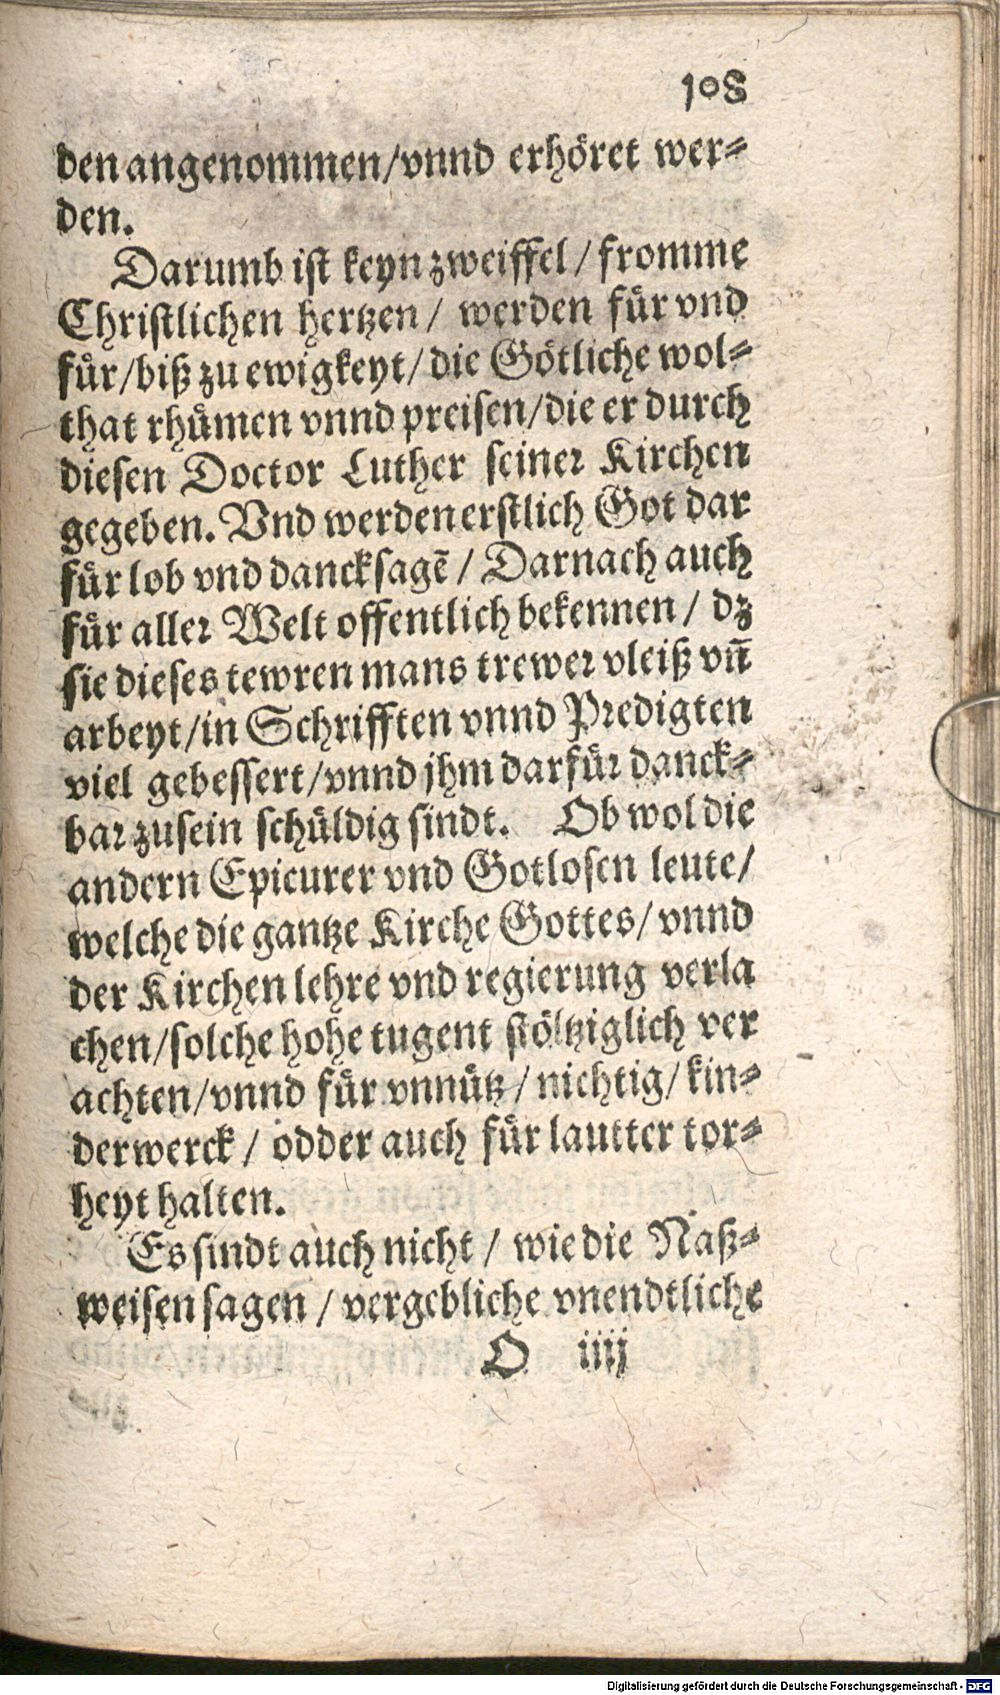 108
den angenommen/vnnd erhöret wer⸗
den.
Darumb ist keyn zweiffel / fromme
Christlichen hertzen / werden fuͤr vnd
fuͤr/biß zu ewigkeyt/ die Goͤtliche wol⸗
that rhuͤmen vnnd preisen/die er durch
diesen Doctor Luther seiner Kirchen
gegeben. Vnd werden erstlich Got dar
fuͤr lob vnd dancksagē / Darnach auch
fuͤr aller Welt offentlich bekennen / dz
sie dieses tewren mans trewer vleiß vñ
arbeyt/in Schrifften vnnd Predigten
viel gebessert/vnnd jhm darfuͤr danck⸗
bar zusein schuͤldig sindt. Ob wol die
andern Epicurer vnd Gotlosen leute/
welche die gantze Kirche Gottes/ vnnd
der Kirchen lehre vnd regierung verla
chen/solche hohe tugent stoͤltziglich ver
achten/vnnd fuͤr vnnuͤtz / nichtig/ kin⸗
derwerck / odder auch fuͤr lautter tor⸗
heyt halten.
Es sindt auch nicht / wie die Naß⸗
weisen sagen / vergebliche vnendtliche
O iiij
Digitalisierung gefördert durch die Deutsche Forschungsgemeinschaft - DFG